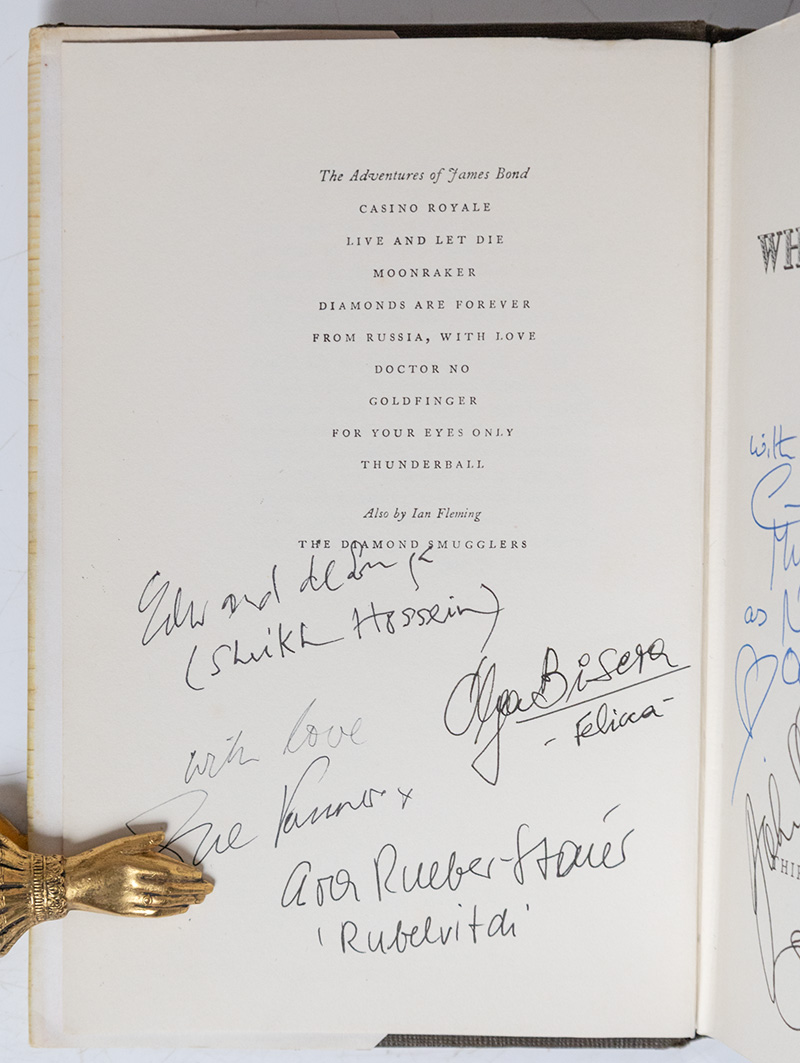 The Adventures of James Bond
CASINO ROYALE
LIVE AND LET DIE
MOONRAKER
DIAMONDS ARE FOREVER
FROM RUSSIA, WITH LOVE
DOCTOR NO
GOLDFINGER
FOR YOUR EYES ONLY
THUNDERBALL
Also by Ian Fleming
THE DIAMOND SMUGGLERS
Edward de Souza
(Sheikh Hossein)
Olga Bisera
- Felicca -
with love
Sue Vanner x
Eva Rueber-Staier
'Rubelvitch'
WH
with
as
John
THIR